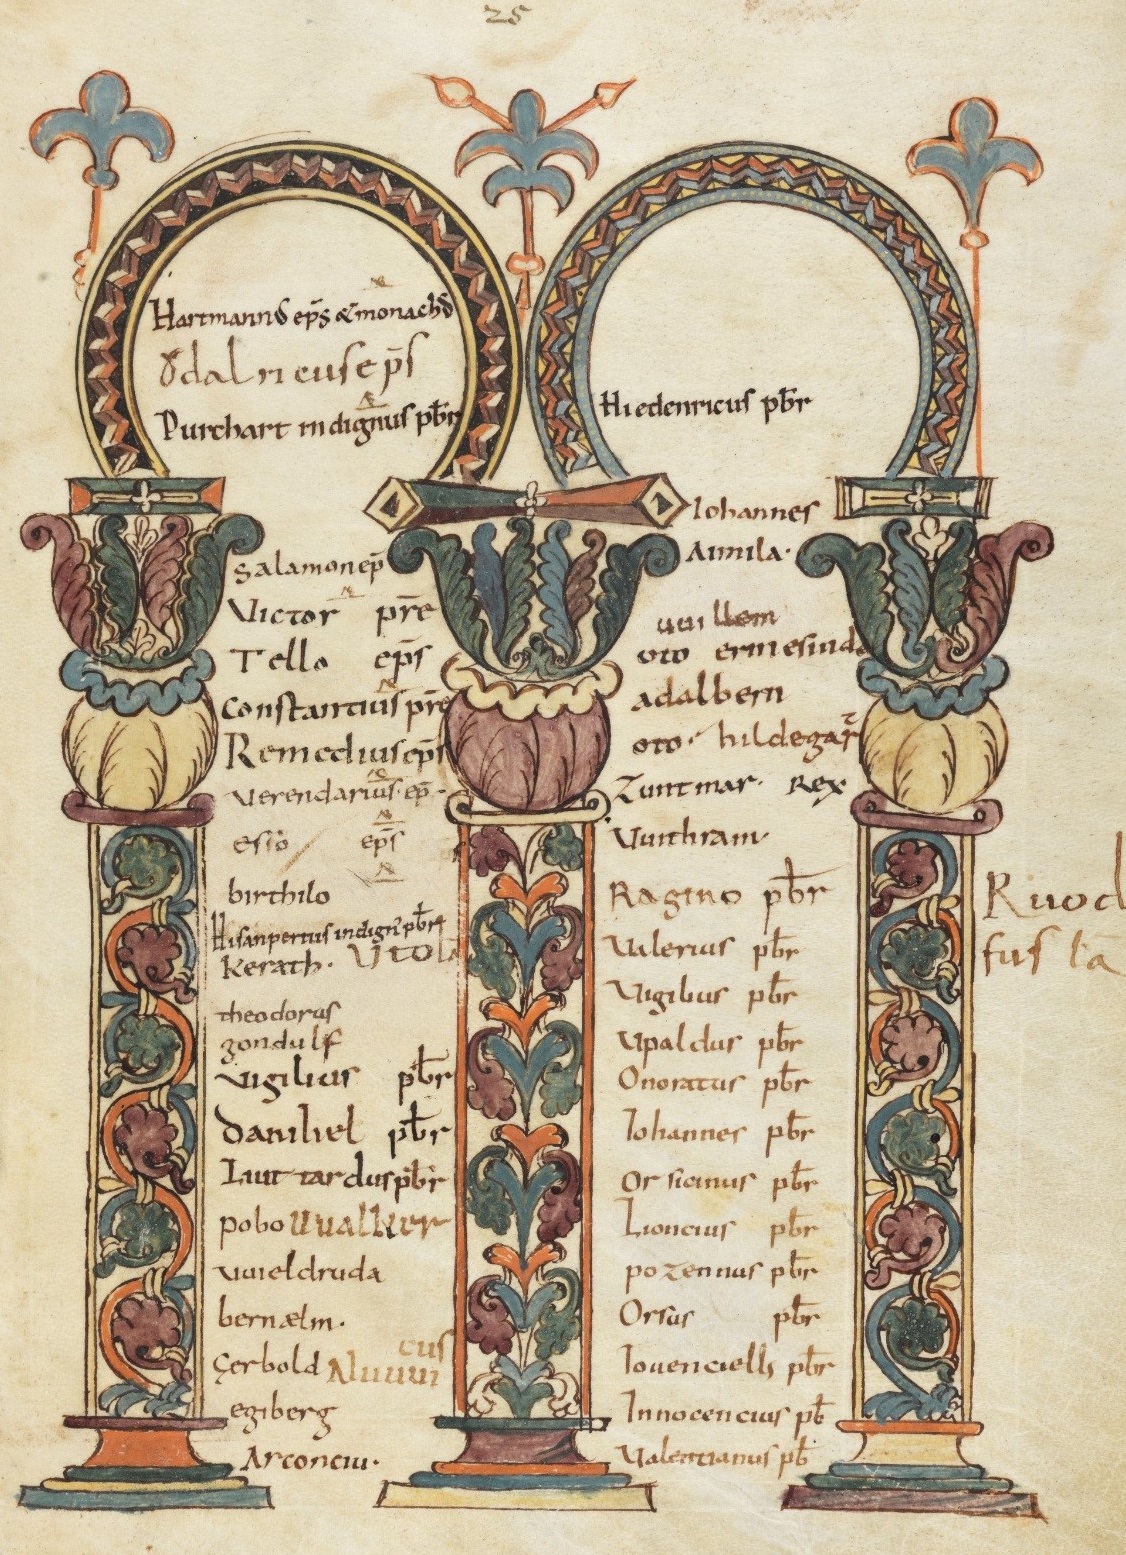 25
Hartmannꝰ ep̄s & monachꝰ
Ȣdalricus ep̄s
Purchart indignus pb̄r
Salamon ep̄
Victor p̄re
Tello ep̄s
Constantius p̄re
Remedius ep̄s
Verendarius ep̄
esio ep̄s
birthilo
Hisanpertus indign' pb̄r
Kerath. Vtol
theodorus
gondulf
Vigilius pb̄r
Danihel pb̄r
Luittardus pb̄r
pobo Uualtker
vvieldruda
bernælm.
Gerbold
cus
egiberg
Arconciu.
Hiedenricus pb̄r
Iohannes
Aimila.
uuillem
oto ermesinda
adalbern
oto. hildegar
Zuntmar. Rex
Vuithram.
Ragino pb̄r
Valerius pb̄r
Vigibus pb̄r
Vpaldus pb̄r
Onoratus pb̄r
Iohannes pb̄r
Orsicinus pb̄r
Lioncius pb̄r
pozennus pb̄r
Orsus pb̄r
Iovenciells pb̄r
Innocencius pb̄
Valentianus pb̄
Ruod
fus la